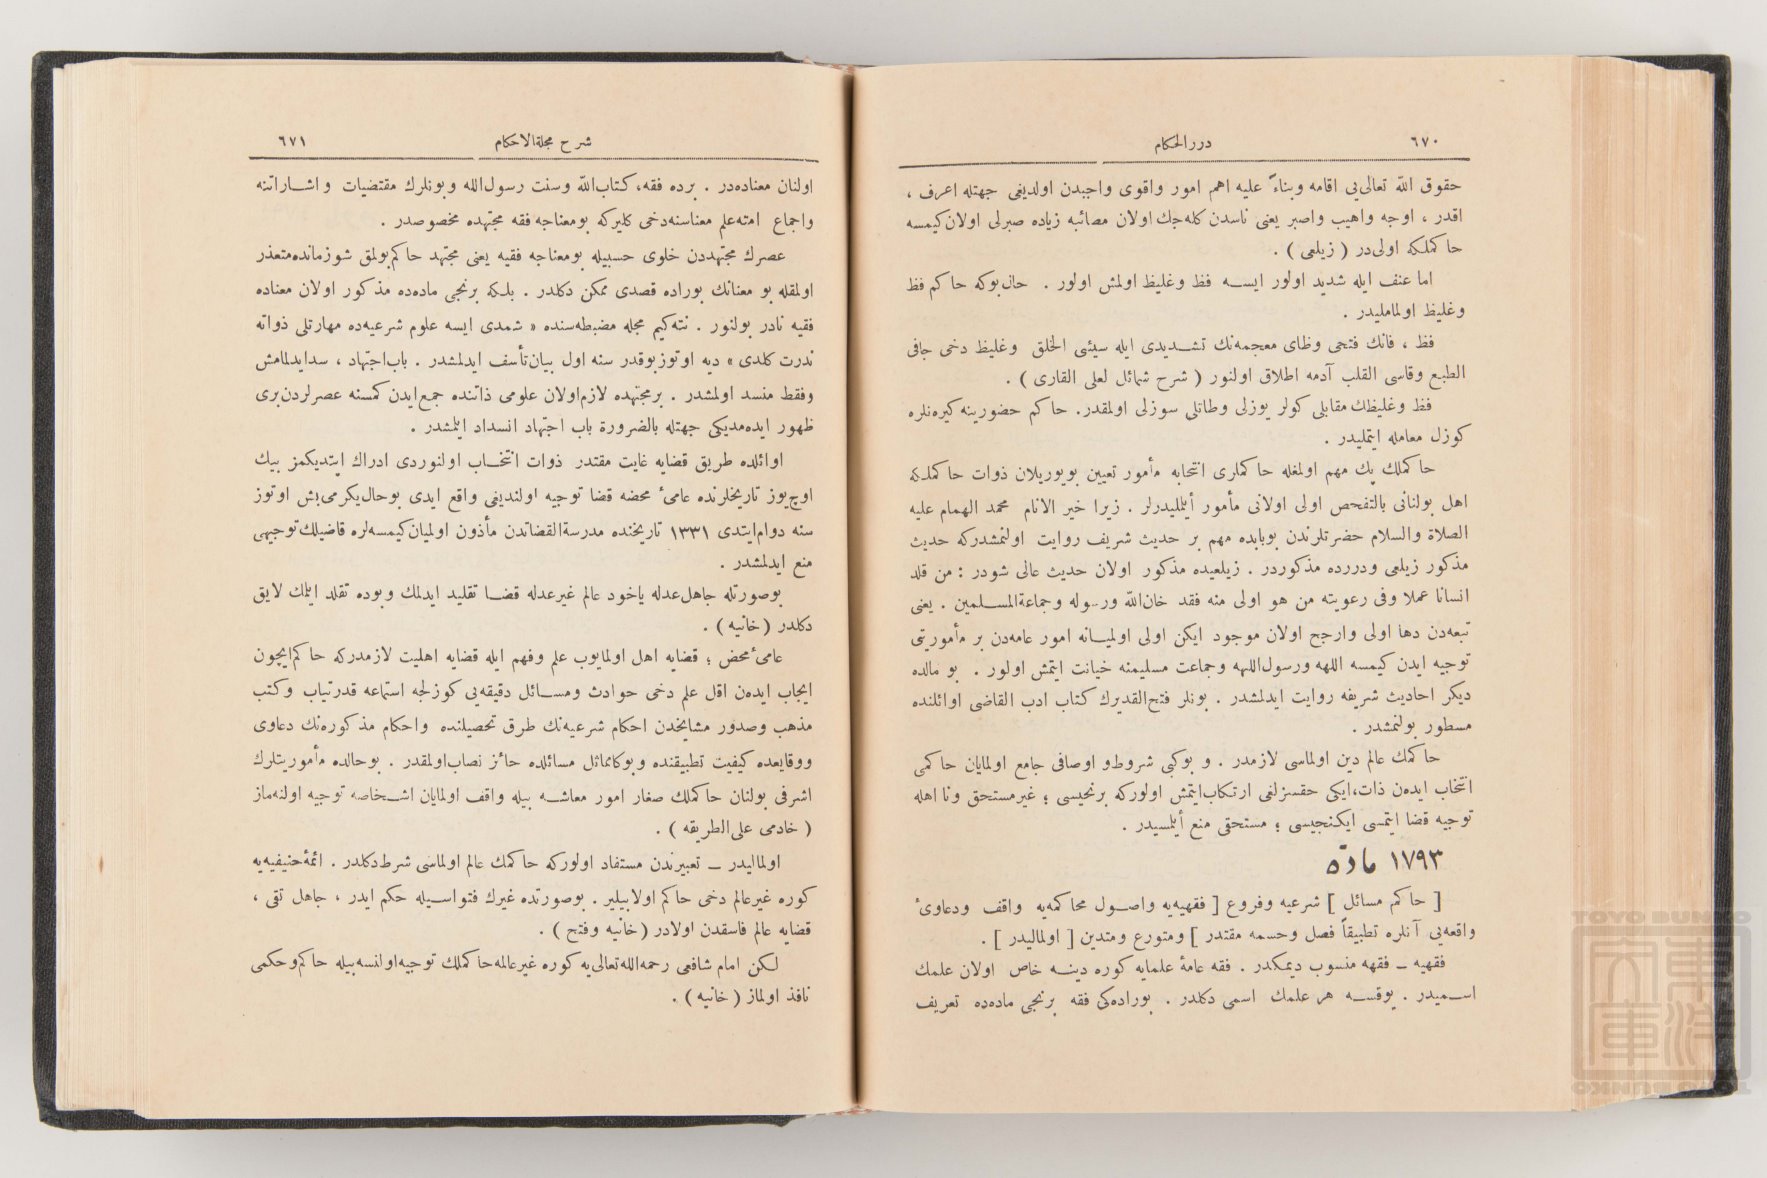 ٦٧٠
دررالحكام
حقوق الله تعالى‌يى اقامه وبناءً عليه اهم امور واقوى واجبدن اولديغى جهتله اعرف ،
اقدر ، اوجه واهيب واصبر يعنى ناسدن كله‌جك اولان مصائبه زياده صبرلى اولان كيمسه
حاكملكه اولى‌در ( زيلعى ) .
اما عنف ايله شديد اولور ايسه فظ وغليظ اولمش اولور . حال‌بوكه حاكم فظ
وغليظ اولماملیدر .
فظ ، فانك فتحى وظاى معجمه‌نك تشديدى ايله سيئى الخلق وغليظ دخى جافى
الطبع وقاسى القلب آدمه اطلاق اولنور ( شرح شمائل لعلى القارى ) .
فظ وغليظك مقابلى كولر يوزلى وطاتلى سوزلى اولمقدر. حاكم حضورينه كيره‌نلره
كوزل معامله ايتمليدر .
حاكملك پك مهم اولمغله حاكملرى انتخابه مأمور تعيين بويوريلان ذوات حاكملكه
اهل بولنانى بالتفحص اولى اولانى مأمور أيلمليدرلر . زيرا خير الانام محمد الهمام عليه
الصلاة والسلام حضرتلرندن بوبابده مهم بر حديث شريف روايت اولنمشدركه حديث
مذكور زيلعى ودررده مذكوردر . زيلعيده مذكور اولان حديث عالى شودر : من قلد
انسانا عملا وفى رعويته من هو اولى منه فقد خان‌الله ورسوله وجماعةالمسلمين . يعنى
تبعه‌دن دها اولى وارجح اولان موجود ايكن اولى اوليانه امور عامه‌دن بر مأموريتى
توجيه ايدن كيمسه اللهه ورسول‌اللهه وجماعت مسليمنه خيانت ايتمش اولور . بو مالده
ديكر احاديث شريفه روايت ايدلمشدر . بونلر فتح‌القديرك كتاب ادب القاضى اوائلنده
مسطور بولنمشدر .
حاكمك عالم دين اولماسى لازمدر . و بوكبى شروط‌و اوصافى جامع اولمايان حاكمى
انتخاب ايده‌ن ذات،ايكى حقسزلغى ارتكاب‌ايتمش اولوركه برنجيسى ؛ غيرمستحق ونا اهله
توجيه قضا ايتمسى ايكنجيسى ؛ مستحقى منع أيلمسيدر .
١٧٩٣ مادّه
[ حاكم مسائل ] شرعيه وفروع [ فقهيه‌يه واصول محاكمه‌يه واقف ودعاوئ
واقعه‌يى آنلره تطبيقاً فصل وحسمه مقتدر ] ومتورع ومتدين [ اولماليدر ] .
فقهيه ــ فقهه منسوب ديمكدر . فقه عامهٔ علمايه كوره دينه خاص اولان علمك
اسميدر . يوقسه هر علمك اسمى دكلدر . بوراده‌كى فقه برنجى ماده‌ده تعريف
شرح مجلةالاحكام
٦٧١
اولنان معناده‌در . برده فقه، كتاب‌الله وسنت رسول‌الله وبونلرك مقتضيات واشاراتنه
واجماع امته‌علم معناسنه‌دخى كليركه بومعناجه فقه مجتهده مخصوصدر .
عصرك مجتهددن خلوى حسبيله بومعناجه فقيه يعنى مجتهد حاكم‌بولمق شوزمانده‌متعذر
اولمقله بو معنانك بوراده قصدى ممكن دكلدر . بلكه برنجى ماده‌ده مذكور اولان معناده
فقيه نادر بولنور . نته‌كيم مجله مضبطه‌سنده « شمدى ايسه علوم شرعيه‌ده مهارتلى ذواته
ندرت كلدى » ديه اوتوزبوقدر سنه اول بيان‌تأسف ايدلمشدر . باب‌اجتهاد ، سدايدلمامش
وفقط منسد اولمشدر . برمجتهده لازم‌اولان علومى ذاتنده جمع‌ايدن كمسنه عصرلردن‌برى
ظهور ايده‌مديكى جهتله بالضرورة باب اجتهاد انسداد ايلمشدر .
اوائلده طريق قضايه غايت مقتدر ذوات انتخاب اولنوردى ادراك ايتديكمز بيك
اوچ‌يوز تاريخلرنده عامئ محضه قضا توجيه اولنديغى واقع ايدى بوحال‌يكرمى‌بش اوتوز
سنه دوام‌ايتدى ١٣٣١ تاريخنده مدرسةالقضاتدن مأذون اولميان‌كيمسه‌لره قاضيلك‌توجيهى
منع ايدلمشدر .
بوصورتله جاهل‌عدله ياخود عالم غيرعدله قضا تقليد ايدلمك وبوده تقلد ايلمك لايق
دكلدر (خانيه ) .
عامئ‌محض ؛ قضايه اهل اولمايوب علم وفهم ايله قضايه اهليت لازمدركه حاكم‌ايچون
ايجاب ايده‌ن اقل علم دخى حوادث ومسائل دقيقه‌يى كوزلجه استماعه قدرتياب وكتب
مذهب وصدور مشايخدن احكام شرعيه‌نك طرق تحصيلنده واحكام مذكوره‌نك دعاوى
ووقايعده كيفيت تطبيقنده وبوكامماثل مسائلده حائز نصاب‌اولمقدر . بوحالده مأموريتلرك
اشرفى بولنان حاكملك صغار امور معاشه بيله واقف اولمايان اشخاصه توجيه اولنه‌ماز
( خادمى على‌الطريقه ) .
اولماليدر ــ تعبيرندن مستفاد اولوركه حاكمك عالم اولماسى شرط‌دكلدر . ائمهٔ‌حنيفيه‌يه
كوره غيرعالم دخى حاكم اولابيلير . بوصورتده غيرك فتواسيله حكم ايدر ، جاهل تقى ،
قضايه عالم فاسقدن اولادر (خانيه وفتح ) .
لكن امام شافعى رحمه‌الله‌تعالى‌يه كوره غيرعالمه‌حاكملك توجيه‌اولنسه‌بيله حاكم‌وحكمى
نافذ اولماز (خانيه ) .
TOYO BUNKO
東洋文庫
TOYO BUNKO